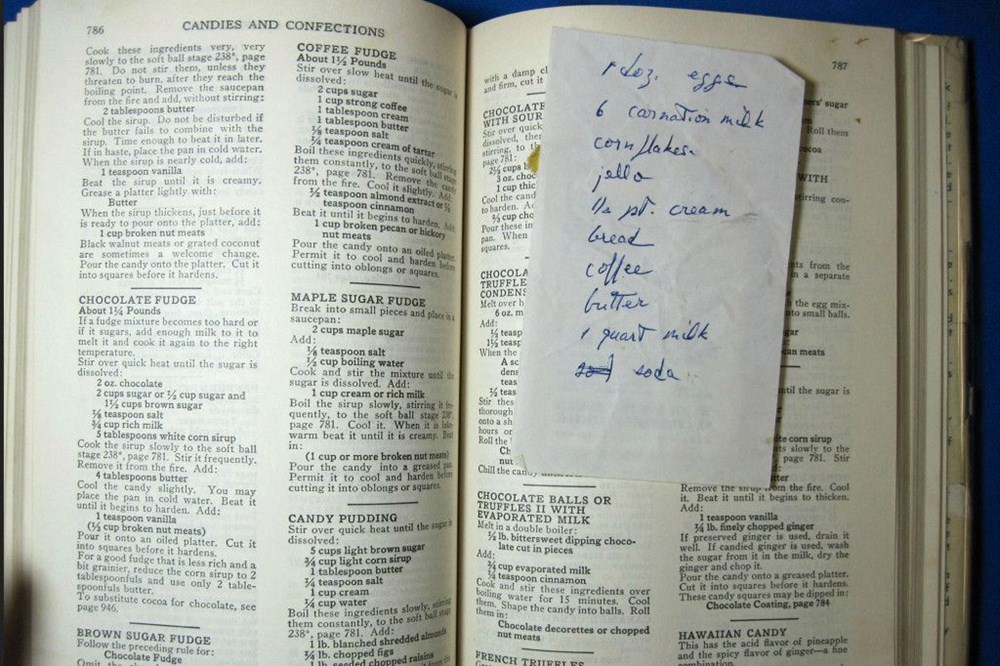 786
CANDIES AND CONFECTIONS
Cook these ingredients very, very
slowly to the soft ball stage 238°, page
781. Do not stir them, unless they
threaten to burn, after they reach the
boiling point. Remove the saucepan
from the fire and add, without stirring:
2 tablespoons butter
Cool the sirup. Do not be disturbed if
the butter fails to combine with the
sirup. Time enough to beat it in later.
If in haste, place the pan in cold water.
When the sirup is nearly cold, add:
1 teaspoon vanilla
Beat the sirup until it is creamy.
Grease a platter lightly with:
Butter
When the sirup thickens, just before it
is ready to pour onto the platter, add:
1 cup broken nut meats
Black walnut meats or grated coconut
are sometimes a welcome change.
Pour the candy onto the platter. Cut it
into squares before it hardens.
CHOCOLATE FUDGE
About 1¼ Pounds
If a fudge mixture becomes too hard or
if it sugars, add enough milk to it to
melt it and cook it again to the right
temperature.
Stir over quick heat until the sugar is
dissolved:
2 oz. chocolate
2 cups sugar or ½ cup sugar and
1½ cups brown sugar
⅛ teaspoon salt
¾ cup rich milk
5 tablespoons white corn sirup
Cook the sirup slowly to the soft ball
stage 238°, page 781. Stir it frequently.
Remove it from the fire. Add:
4 tablespoons butter
Cool the candy slightly. You may
place the pan in cold water. Beat it
until it begins to harden. Add:
1 teaspoon vanilla
(⅓ cup broken nut meats)
Pour it onto an oiled platter. Cut it
into squares before it hardens.
For a good fudge that is less rich and a
bit grainier, reduce the corn sirup to 2
tablespoonfuls and use only 2 table-
spoonfuls butter.
To substitute cocoa for chocolate, see
page 946.
BROWN SUGAR FUDGE
Follow the preceding rule for:
Chocolate Fudge
Omit the
COFFEE FUDGE
About 1½ Pounds
Stir over slow heat until the sugar is
dissolved:
2 cups sugar
1 cup strong coffee
1 tablespoon cream
1 tablespoon butter
⅛ teaspoon salt
¼ teaspoon cream of tartar
Boil these ingredients quickly, stirring
them constantly, to the soft ball stage
238°, page 781. Remove the candy
from the fire. Cool it slightly. Add:
½ teaspoon almond extract or ½
teaspoon cinnamon
Beat it until it begins to harden. Add:
1 cup broken pecan or hickory
nut meats
Pour the candy onto an oiled platter.
Permit it to cool and harden before
cutting into oblongs or squares.
MAPLE SUGAR FUDGE
Break into small pieces and place in a
saucepan:
2 cups maple sugar
Add:
⅛ teaspoon salt
½ cup boiling water
Cook and stir the mixture until the
sugar is dissolved. Add:
1 cup cream or rich milk
Boil the sirup slowly, stirring it fre-
quently, to the soft ball stage 238°,
page 781. Cool it. When it is luke-
warm beat it until it is creamy. Beat
in:
(1 cup or more broken nut meats)
Pour the candy into a greased pan.
Permit it to cool and harden before
cutting it into oblongs or squares.
CANDY PUDDING
Stir over quick heat until the sugar is
dissolved:
5 cups light brown sugar
¾ cup light corn sirup
1 tablespoon butter
¼ teaspoon salt
1 cup cream
¾ cup water
Boil these ingredients slowly, stirring
them constantly, to the soft ball stage
238°, page 781. Add:
1 lb. blanched shredded almonds
¼ lb. chopped figs
1 lb. seeded chopped raisins
787
with a damp cl
and firm, cut it
CHOCOLATE
WITH SOUR
Stir over quick
dissolved, then
stirring, to th
page 781:
2½ cups
3 oz. choc
1 cup thic
Cool the cand
to harden. Ad
½ cup cho
Pour these in
pan. When
squares.
CHOCOLA
TRUFFLE
CONDENS
Melt over h
6 oz. m
Add:
teasp
teasp
When the
A sc
dens
teas
teas
Stir thes
thorough
onto a sh
hours or
Roll the
Ch
nut
Chill the candy
CHOCOLATE BALLS OR
TRUFFLES II WITH
EVAPORATED MILK
Melt in a double boiler:
½ lb. bittersweet dipping choco-
late cut in pieces
Add:
¾ cup evaporated milk
¼ teaspoon cinnamon
Cook and stir these ingredients over
boiling water for 15 minutes. Cool
them. Shape the candy into balls. Roll
them in:
Chocolate decorettes or chopped
nut meats
FRENCH TRUFFLES
1 doz. eggs
6 carnation milk
cornflakes.
jello
½ pt. cream
bread
coffee
butter
1 quart milk
soda
ers' sugar
Roll them
ocoa
WITH
stirring con-
nts from the
in a separate
the egg mix-
to small balls.
gar
can meats
ntil the sugar is
te corn sirup
ts slowly to the
page 781. Stir
tter
Remove the sirup from the fire. Cool
it. Beat it until it begins to thicken.
Add:
1 teaspoon vanilla
¼ lb. finely chopped ginger
If preserved ginger is used, drain it
well. If candied ginger is used, wash
the sugar from it in the milk, dry the
ginger and chop it.
Pour the candy onto a greased platter.
Cut it into squares before it hardens.
These candy squares may be dipped in:
Chocolate Coating, page 784
HAWAIIAN CANDY
This has the acid flavor of pineapple
and the spicy flavor of ginger—a fine
combination.